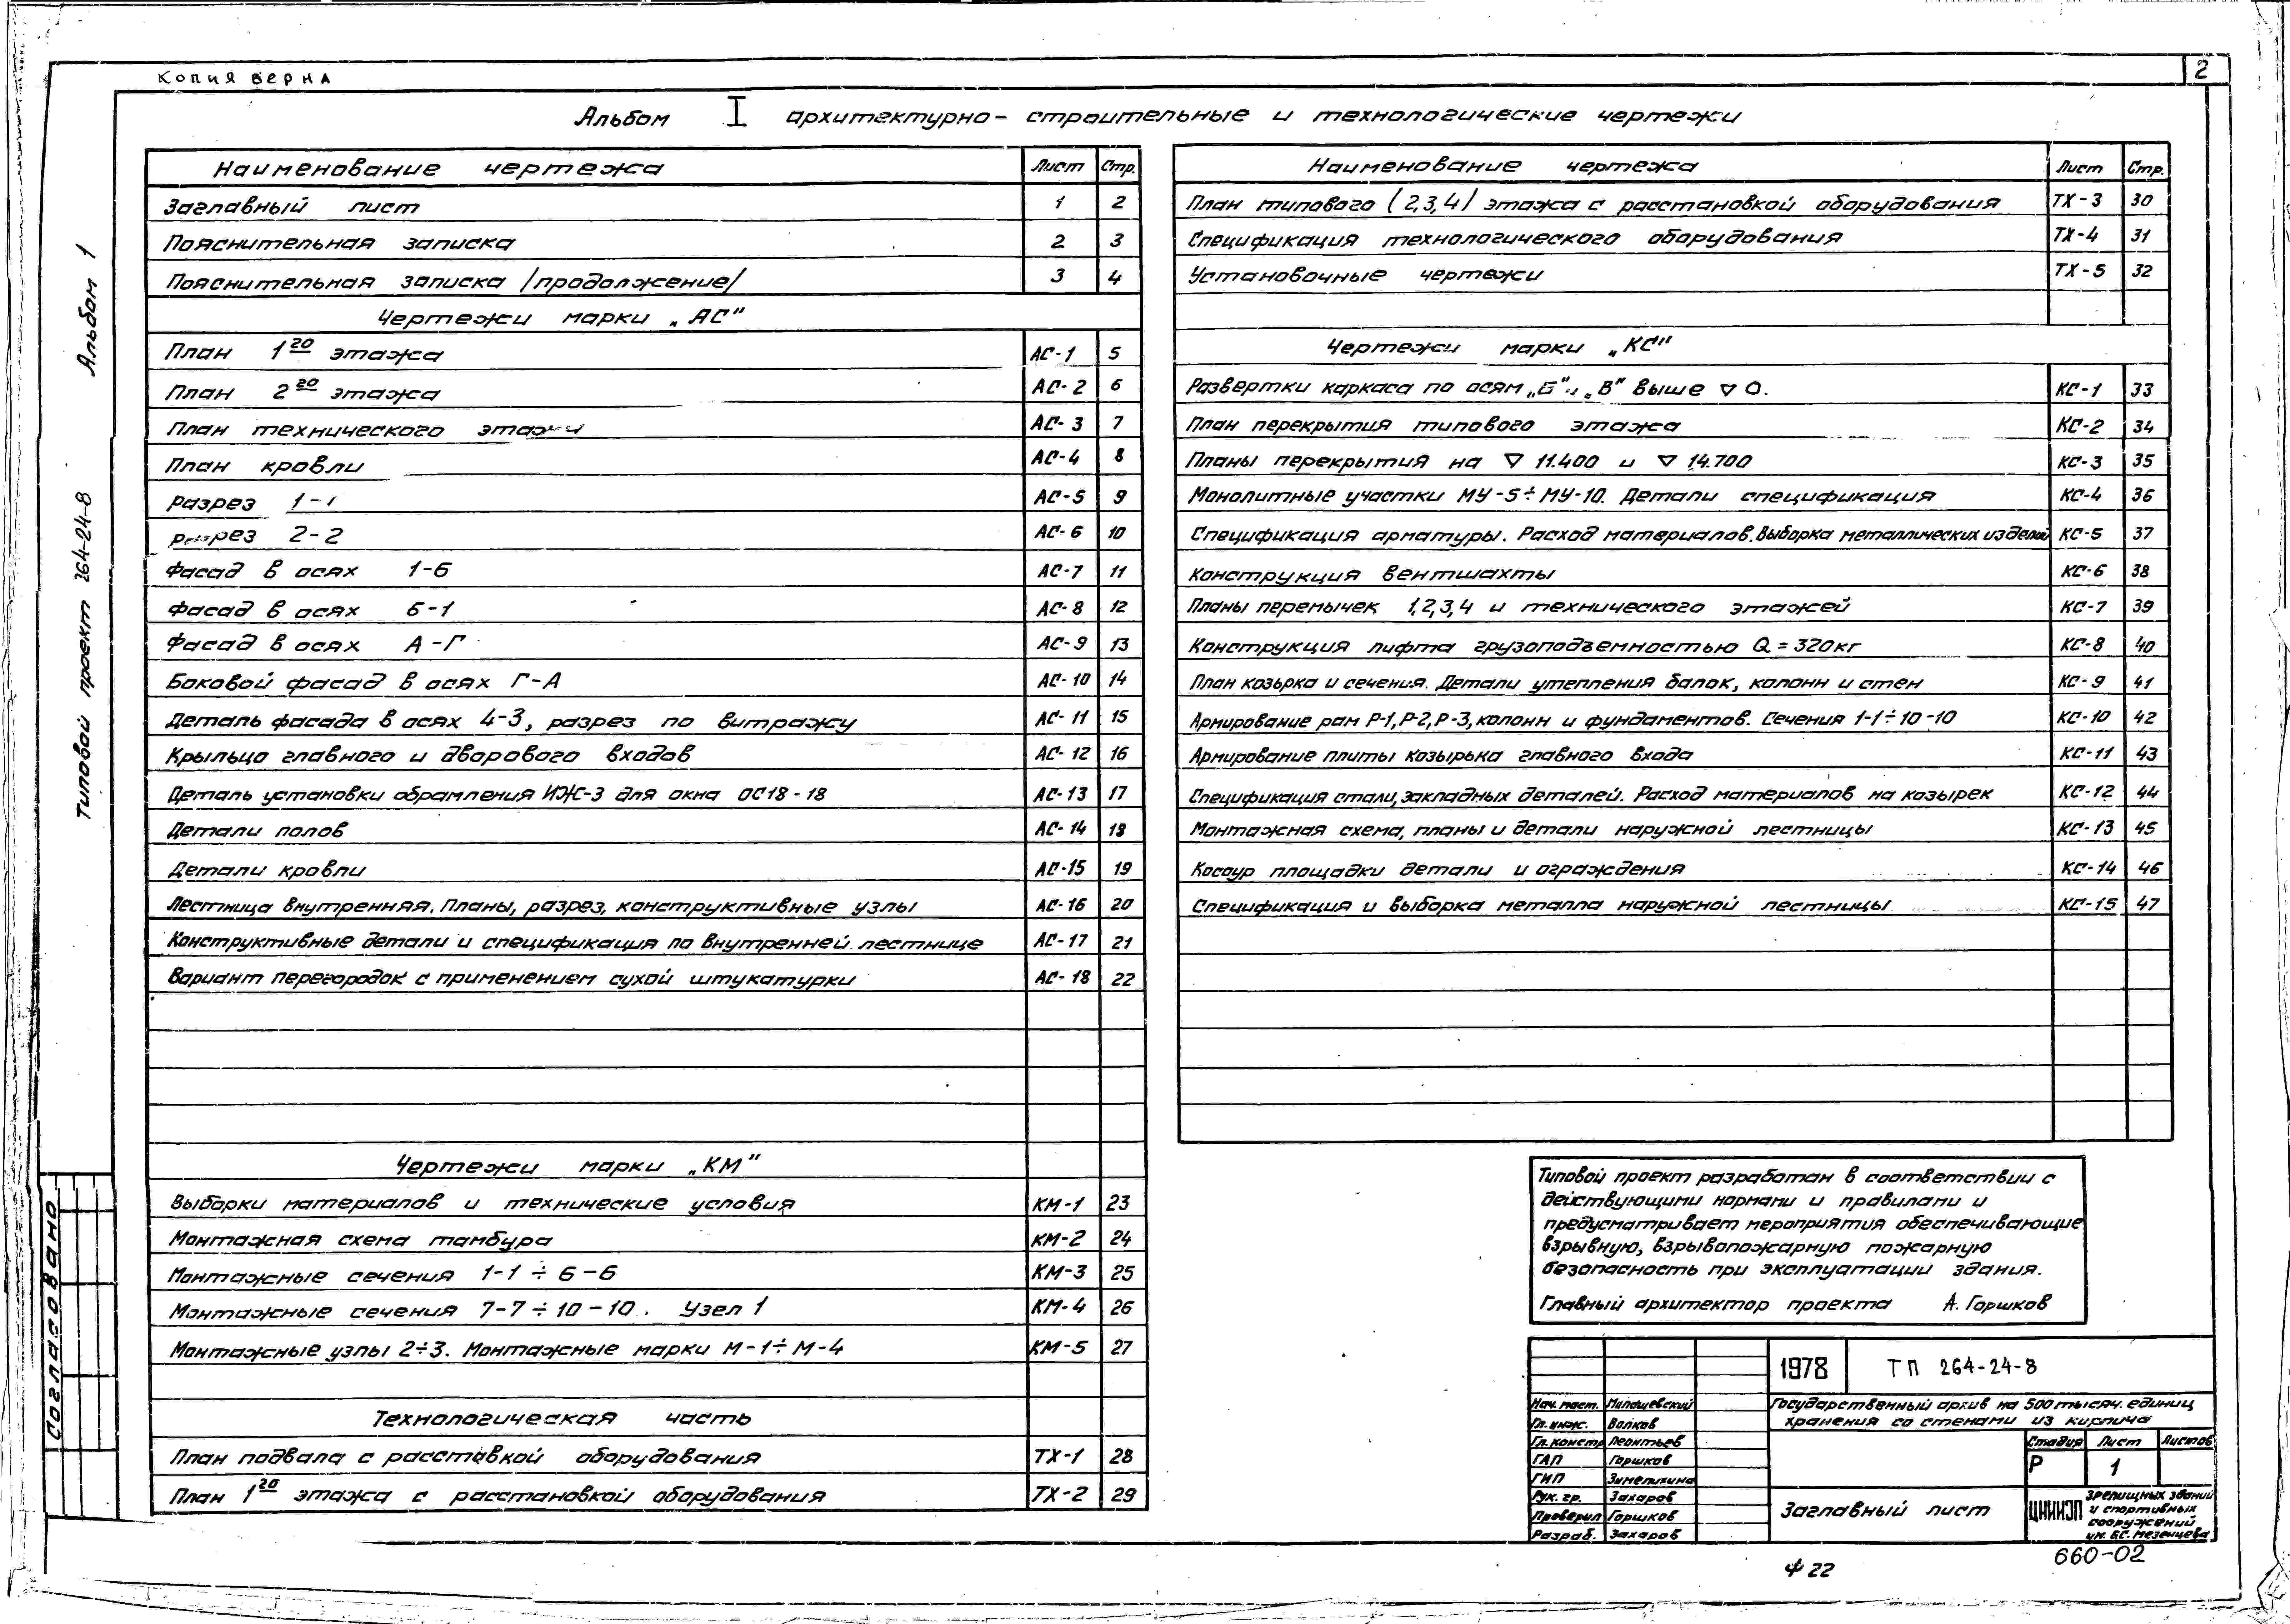 2
Копия верна
Альбом I архитектурно-строительные и технологические чертежи
Альбом 1
Типовой проект 264-24-8
Согласовано
Наименование чертежа Лист Стр.
Заглавный лист 1 2
Пояснительная записка 2 3
Пояснительная записка /продолжение/ 3 4
Чертежи марки „АС"
План 1го этажа АС-1 5
План 2го этажа АС-2 6
План технического этажа АС-3 7
План кровли АС-4 8
Разрез 1-1 АС-5 9
Разрез 2-2 АС-6 10
Фасад в осях 1-6 АС-7 11
Фасад в осях 6-1 АС-8 12
Фасад в осях А-Г АС-9 13
Боковой фасад в осях Г-А АС-10 14
Деталь фасада в осях 4-3, разрез по витражу АС-11 15
Крыльцо главного и дворового входов АС-12 16
Деталь установки обрамления ИЖ-3 для окна ОС18-18 АС-13 17
Детали полов АС-14 18
Детали кровли АС-15 19
Лестница внутренняя. Планы, разрез, конструктивные узлы АС-16 20
Конструктивные детали и спецификация по внутренней лестнице АС-17 21
Вариант перегородок с применением сухой штукатурки АС-18 22
Чертежи марки „КМ"
Выборки материалов и технические условия КМ-1 23
Монтажная схема тамбура КМ-2 24
Монтажные сечения 1-1 ÷ 6-6 КМ-3 25
Монтажные сечения 7-7 ÷ 10-10. Узел 1 КМ-4 26
Монтажные узлы 2÷3. Монтажные марки М-1÷М-4 КМ-5 27
Технологическая часть
План подвала с расставкой оборудования ТХ-1 28
План 1го этажа с расстановкой оборудования ТХ-2 29
Наименование чертежа Лист Стр.
План типового (2,3,4) этажа с расстановкой оборудования ТХ-3 30
Спецификация технологического оборудования ТХ-4 31
Установочные чертежи ТХ-5 32
Чертежи марки „КС"
Развертки каркаса по осям „Б" и „В" выше ▽ 0. КС-1 33
План перекрытия типового этажа КС-2 34
Планы перекрытия на ▽ 11.400 и ▽ 14.700 КС-3 35
Монолитные участки МУ-5÷МУ-10. Детали спецификация КС-4 36
Спецификация арматуры. Расход материалов. Выборка металлических изделий КС-5 37
Конструкция вентшахты КС-6 38
Планы перемычек 1,2,3,4 и технического этажей КС-7 39
Конструкция лифта грузоподъемностью Q = 320кг КС-8 40
План козырка и сечения. Детали утепления балок, колонн и стен КС-9 41
Армирование рам Р-1, Р-2, Р-3, колонн и фундаментов. Сечения 1-1÷10-10 КС-10 42
Армирование плиты козырька главного входа КС-11 43
Спецификация стали, закладных деталей. Расход материалов на козырек КС-12 44
Монтажная схема, планы и детали наружной лестницы КС-13 45
Косоур площадки детали и ограждения КС-14 46
Спецификация и выборка металла наружной лестницы КС-15 47
Типовой проект разработан в соответствии с
действующими нормами и правилами и
предусматривает мероприятия обеспечивающие
взрывную, взрывопожарную пожарную
безопасность при эксплуатации здания.
Главный архитектор проекта А. Горшков
1978 ТП 264-24-8
Нач. маст. Милашевский
Гл. инж. Волков
Гл. констр Леонтьев
ГАП Горшков
ГИП Зимелихина
Рук. гр. Захаров
Проверил Горшков
Разраб. Захаров
Государственный архив на 500 тысяч. единиц
хранения со стенами из кирпича
Стадия Лист Листов
Р 1
Заглавный лист
ЦНИИЭП зрелищных зданий
и спортивных
сооружений
им. Б.С. Мезенцева
660-02
Ф 22